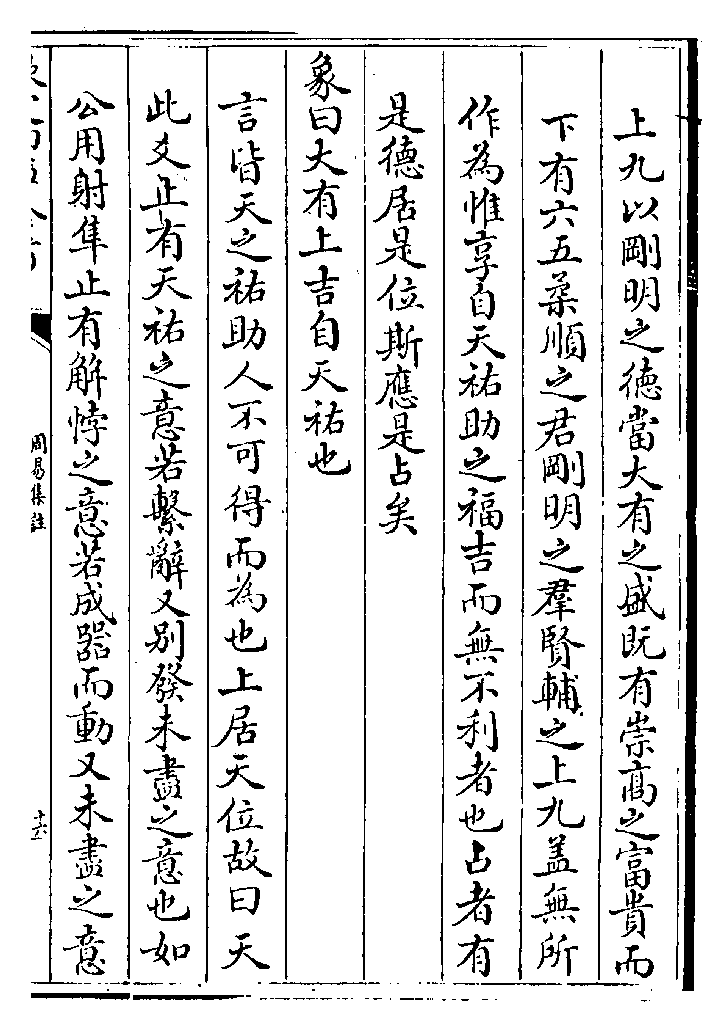 上九以剛明之德當大有之盛既有崇高之富貴而
下有六五柔順之君剛明之羣賢輔之上九盖無所
作為惟享自天祐助之福吉而無不利者也占者有
是德居是位斯應是占矣
象曰大有上吉自天祐也
言皆天之祐助人不可得而為也上居天位故曰天
此爻止有天祐之意若繫辭又别發未盡之意也如
公用射隼止有解悖之意若成器而動又未盡之意
周易集註
十六